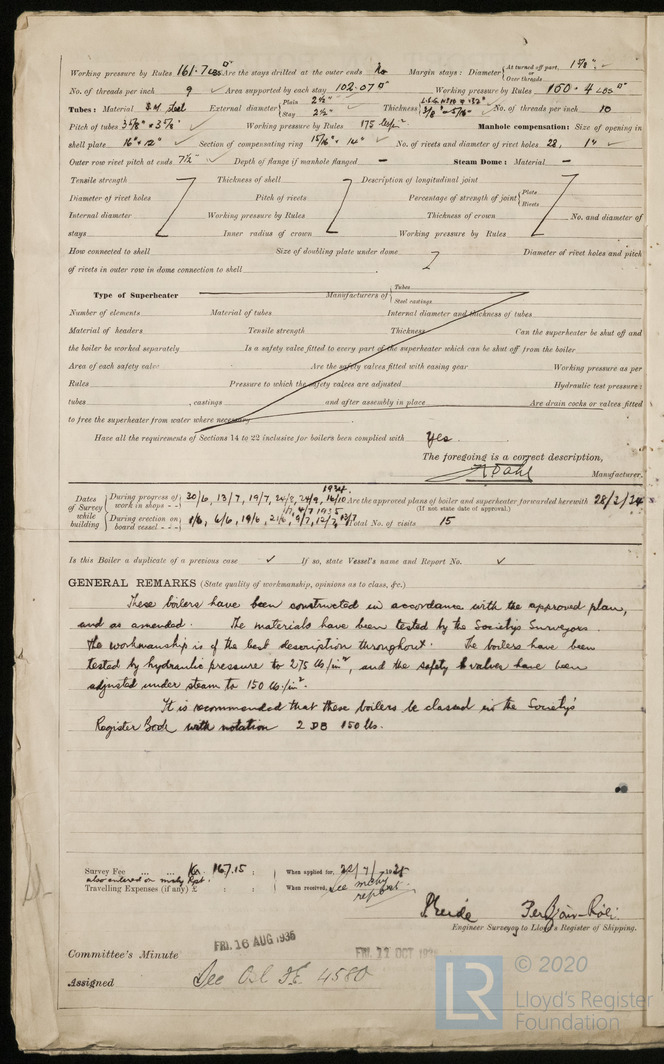 Working pressure by Rules 161.7 lbs □" Are the stays drilled at the outer ends No Margin stays: Diameter { At turned off part, 1 7/8" or Over threads
No. of threads per inch 9 Area supported by each stay 102.07 □" Working pressure by Rules 150.4 LBS □"
Tubes: Material S.M. steel External diameter { Plain 2½" Stay 2½" Thickness 3/8" & 5/16" No. of threads per inch 10
Pitch of tubes 3 5/8" x 3 5/8" Working pressure by Rules 175 Manhole compensation: Size of opening in
shell plate 16" x 12" Section of compensating ring No. of rivets and diameter of rivet holes 28, 1"
Outer row rivet pitch at ends 7½" Depth of flange if manhole flanged – Steam Dome: Material –
Tensile strength Thickness of shell Description of longitudinal joint
Diameter of rivet holes Pitch of rivets Percentage of strength of joint { Plate Rivets
Internal diameter Working pressure by Rules Thickness of crown No. and diameter of
stays Inner radius of crown Working pressure by Rules
How connected to shell Size of doubling plate under dome Diameter of rivet holes and pitch
of rivets in outer row in dome connection to shell
Type of Superheater Manufacturers of { Tubes Steel castings
Number of elements Material of tubes Internal diameter and thickness of tubes
Material of headers Tensile strength Thickness Can the superheater be shut off and
the boiler be worked separately Is a safety valve fitted to every part of the superheater which can be shut off from the boiler
Area of each safety valve Are the safety valves fitted with easing gear Working pressure as per
Rules Pressure to which the safety valves are adjusted Hydraulic test pressure:
tubes , castings and after assembly in place Are drain cocks or valves fitted
to free the superheater from water where necessary
Have all the requirements of Sections 14 to 22 inclusive for boilers been complied with Yes.
The foregoing is a correct description,
Manufacturer.
1934
Dates of Survey while building { During progress of work in shops - - } 20/6, 13/7, 19/7, 24/8, 24/9, 16/10 Are the approved plans of boiler and superheater forwarded herewith 28/2/34
(If not state date of approval.)
1/7, 4/7 1935
{ During erection on board vessel - - - } 1/6, 6/6, 19/6, 9/7, 12/7 Total No. of visits 15
Is this Boiler a duplicate of a previous case ✓ If so, state Vessel's name and Report No. ✓
GENERAL REMARKS (State quality of workmanship, opinions as to class, &c.)
These boilers have been constructed in accordance with the approved plan,
and as amended. The materials have been tested by the Society's Surveyors.
The workmanship is of the best description throughout. The boilers have been
tested by hydraulic pressure to 275 lbs/in², and the safety valves have been
adjusted under steam to 150 lbs./in².
It is recommended that these boilers be classed in the Society's
Register Book with notation 2 DB 150 lbs.
Survey Fee ... ... Kr. 167.15 : When applied for, 22/7/1935
also entered on mchy Rpt.
Travelling Expenses (if any) £ : : When received, See mchy report.
Engineer Surveyor to Lloyd's Register of Shipping.
Committee's Minute FRI. 16 AUG 1935 FRI. 11 OCT 193
Assigned See Osl. F.E. 4580
© 2020
LR
Lloyd's Register
Foundation